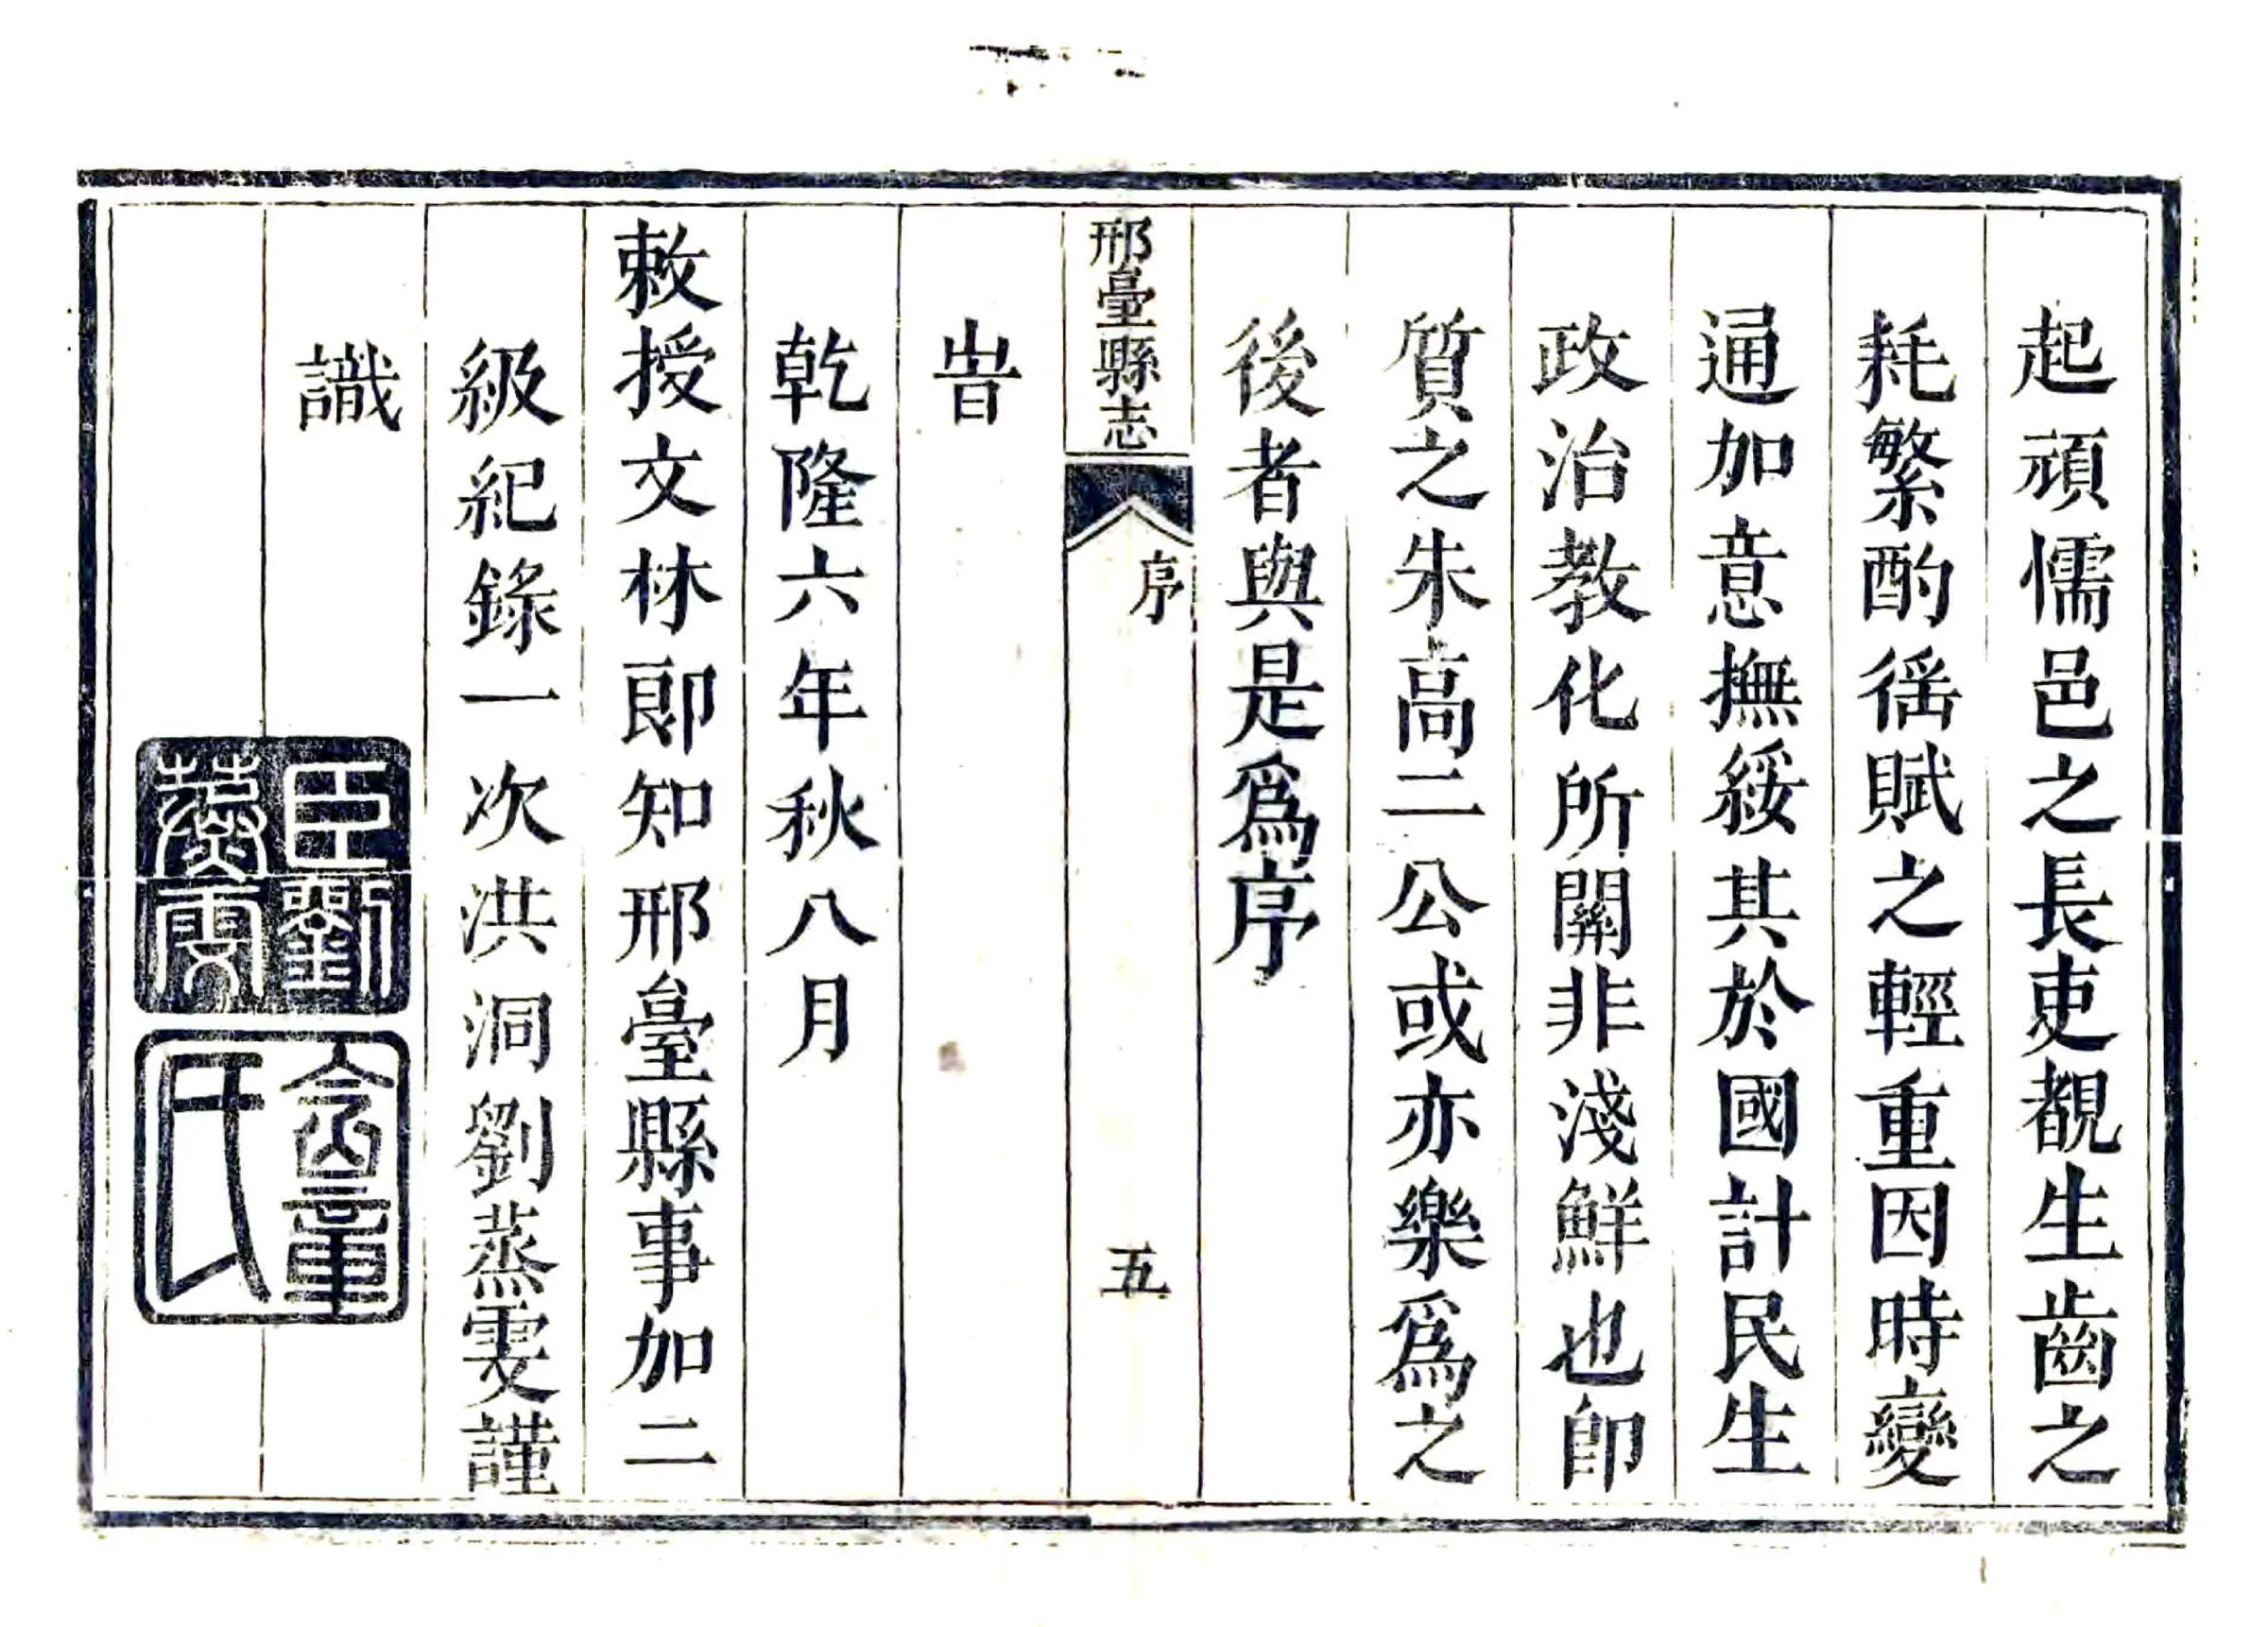 起頑懦邑之長吏覩生齒之
耗繁酌徭賦之輕重因時變
通加意撫綏其於國計民生
政治教化所關非淺鮮也卽
質之朱高二公或亦樂爲之
後者與是爲序
邢臺縣志
序
五
旹
乾隆六年秋八月
敕授文林郎知邢臺縣事加二
級紀錄一次洪洞劉蒸雯謹
識
臣劉
蒸雯
氏